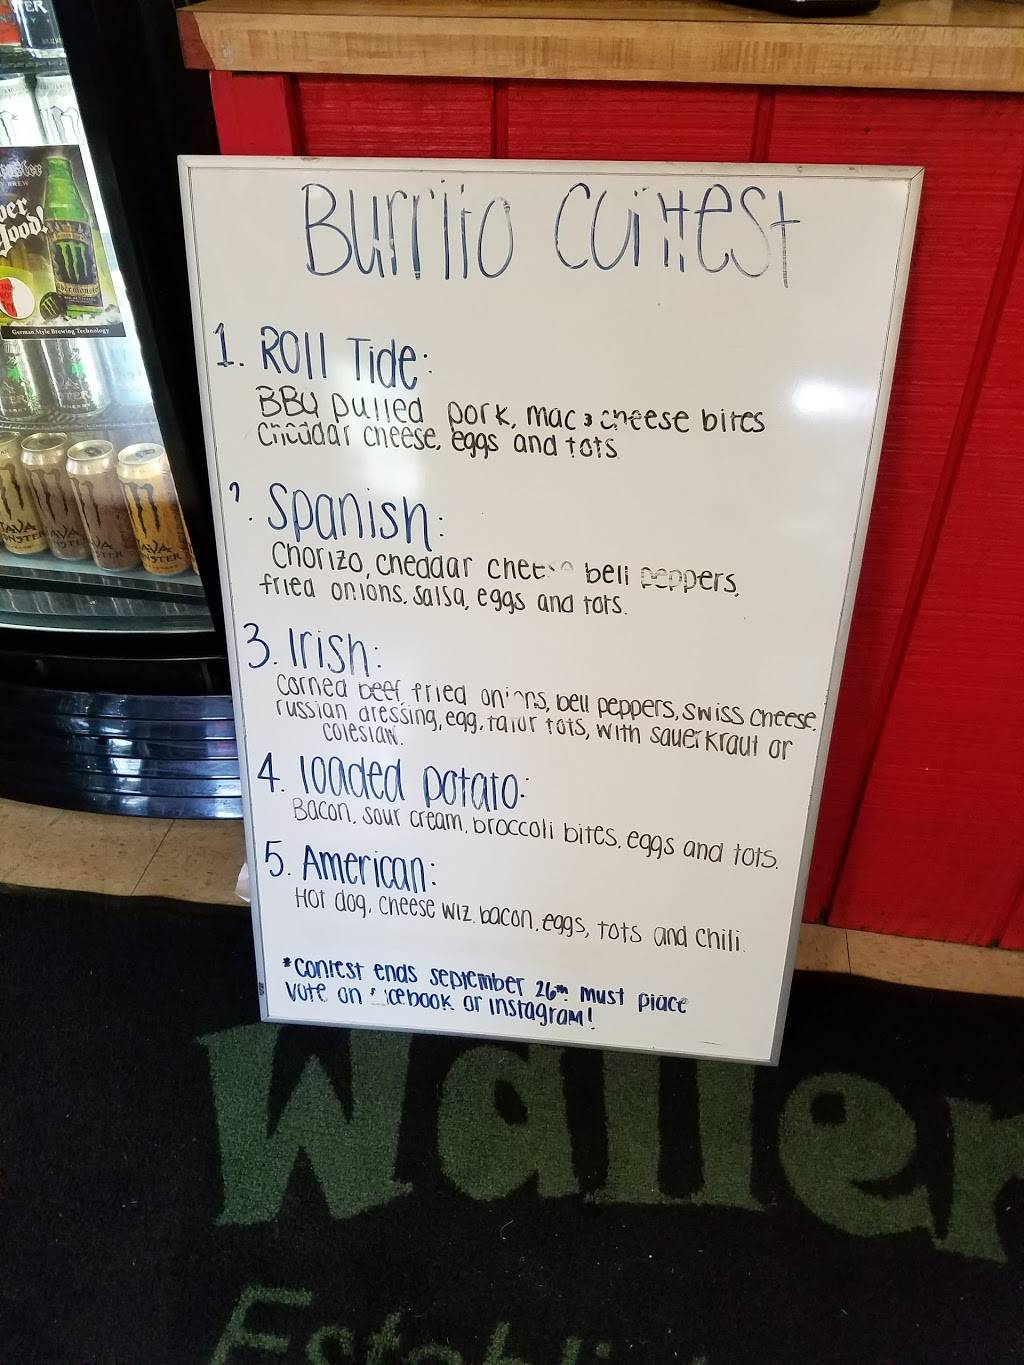 Burrito Contest
1. Roll Tide:
BBQ pulled pork, mac & cheese bites
cheddar cheese, eggs and tots
2. Spanish:
Chorizo, cheddar cheese bell peppers,
fried onions, salsa, eggs and tots.
3. Irish:
corned beef fried onions, bell peppers, swiss cheese,
russian dressing, egg, tator tots, with sauerkraut or
coleslaw.
4. loaded potato:
Bacon, sour cream, broccoli bites, eggs and tots.
5. American:
Hot dog, cheese wiz, bacon, eggs, tots and chili.
*contest ends september 26th must place
vote on facebook or instagram!
German Style Brewing Technology
Waller